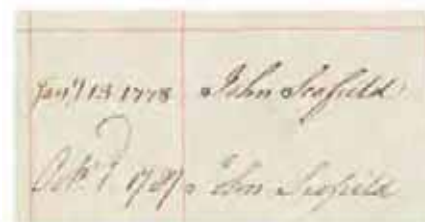 Jany 13 1778 John Scofield
Oct 7 1787 John Scofield